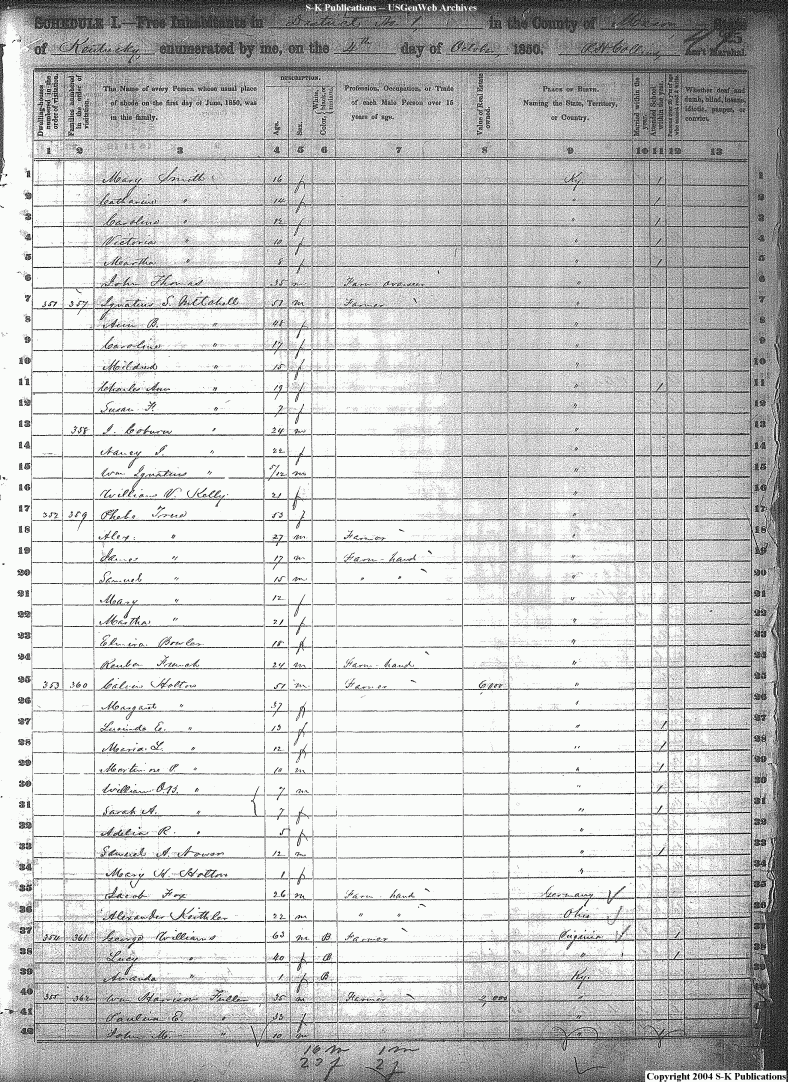 S-K Publications -- USGenWeb Archives
SCHEDULE I.—Free Inhabitants in District No. 1, in the County of Mason State
of Kentucky enumerated by me, on the 4th day of October, 1850. Ass't Marshal.
Dwelling-houses numbered in the order of visitation.
Families numbered in the order of visitation.
The Name of every Person whose usual place of abode on the first day of June, 1850, was in this family.
DESCRIPTION.
Age.
Sex.
Color, White, black, or mulatto.
Profession, Occupation, or Trade of each Male Person over 15 years of age.
Value of Real Estate owned.
PLACE OF BIRTH. Naming the State, Territory, or Country.
Married within the year.
Attended School within the year.
Whether deaf and dumb, blind, insane, idiotic, pauper, or convict.
1 2 3 4 5 6 7 8 9 10 11 12 13
1 Mary Smith 16 f Ky. / 1
2 Catharine " 14 f " / 2
3 Caroline " 12 f " / 3
4 Victoria " 10 f " / 4
5 Martha " 8 f " / 5
6 John Thomas 35 m Farm overseer " 6
7 351 357 Ignatius S. Mitchell 51 m Farmer " 7
8 Ann B. " 48 f " 8
9 Caroline " 17 f " 9
10 Mildred " 15 f " 10
11 Charles Ann " 19 f " / 11
12 Susan F. " 7 f " 12
13 358 I. Coburn " 24 m " 13
14 Nancy I. " 22 f " 14
15 Wm Ignatius " 5/12 m " 15
16 William V. Kelly 21 f " 16
17 352 359 Phebe 53 f " 17
18 Alex. " 27 m Farmer " 18
19 James " 17 m Farm-hand " 19
20 Samuel " 15 m " " " 20
21 Mary " 12 f " 21
22 Martha " 21 f " 22
23 Elmira Bowler 18 f " 23
24 Reuben 24 m Farm-hand " 24
25 353 360 Calvin Holton 51 m Farmer 6,000 " 25
26 Margaret " 37 f " 26
27 Lucinda E. " 13 f " / 27
28 Maria L. " 12 f " / 28
29 Mortimore P. " 10 m " / 29
30 William " 7 m " / 30
31 Sarah A. " 7 f " / 31
32 Adelia R. " 5 f " 32
33 Samuel A. 12 m " / 33
34 Mary H. Holton 1 f " 34
35 Jacob Fox 26 m Farm-hand Germany 35
36 Alexander Keithler 22 m " " Ohio 36
37 354 361 George Williams 63 m B Farmer Virginia / 37
38 Lucy " 40 f B " / 38
39 Amanda " 1 f B Ky. 39
40 355 362 Wm Harrison Fuller 35 m Farmer 2,000 " 40
41 Paulina E. " 33 f " 41
42 John M. " 10 m " / 42
16 m 1 m
23 f 2 f
Copyright 2004 S-K Publications